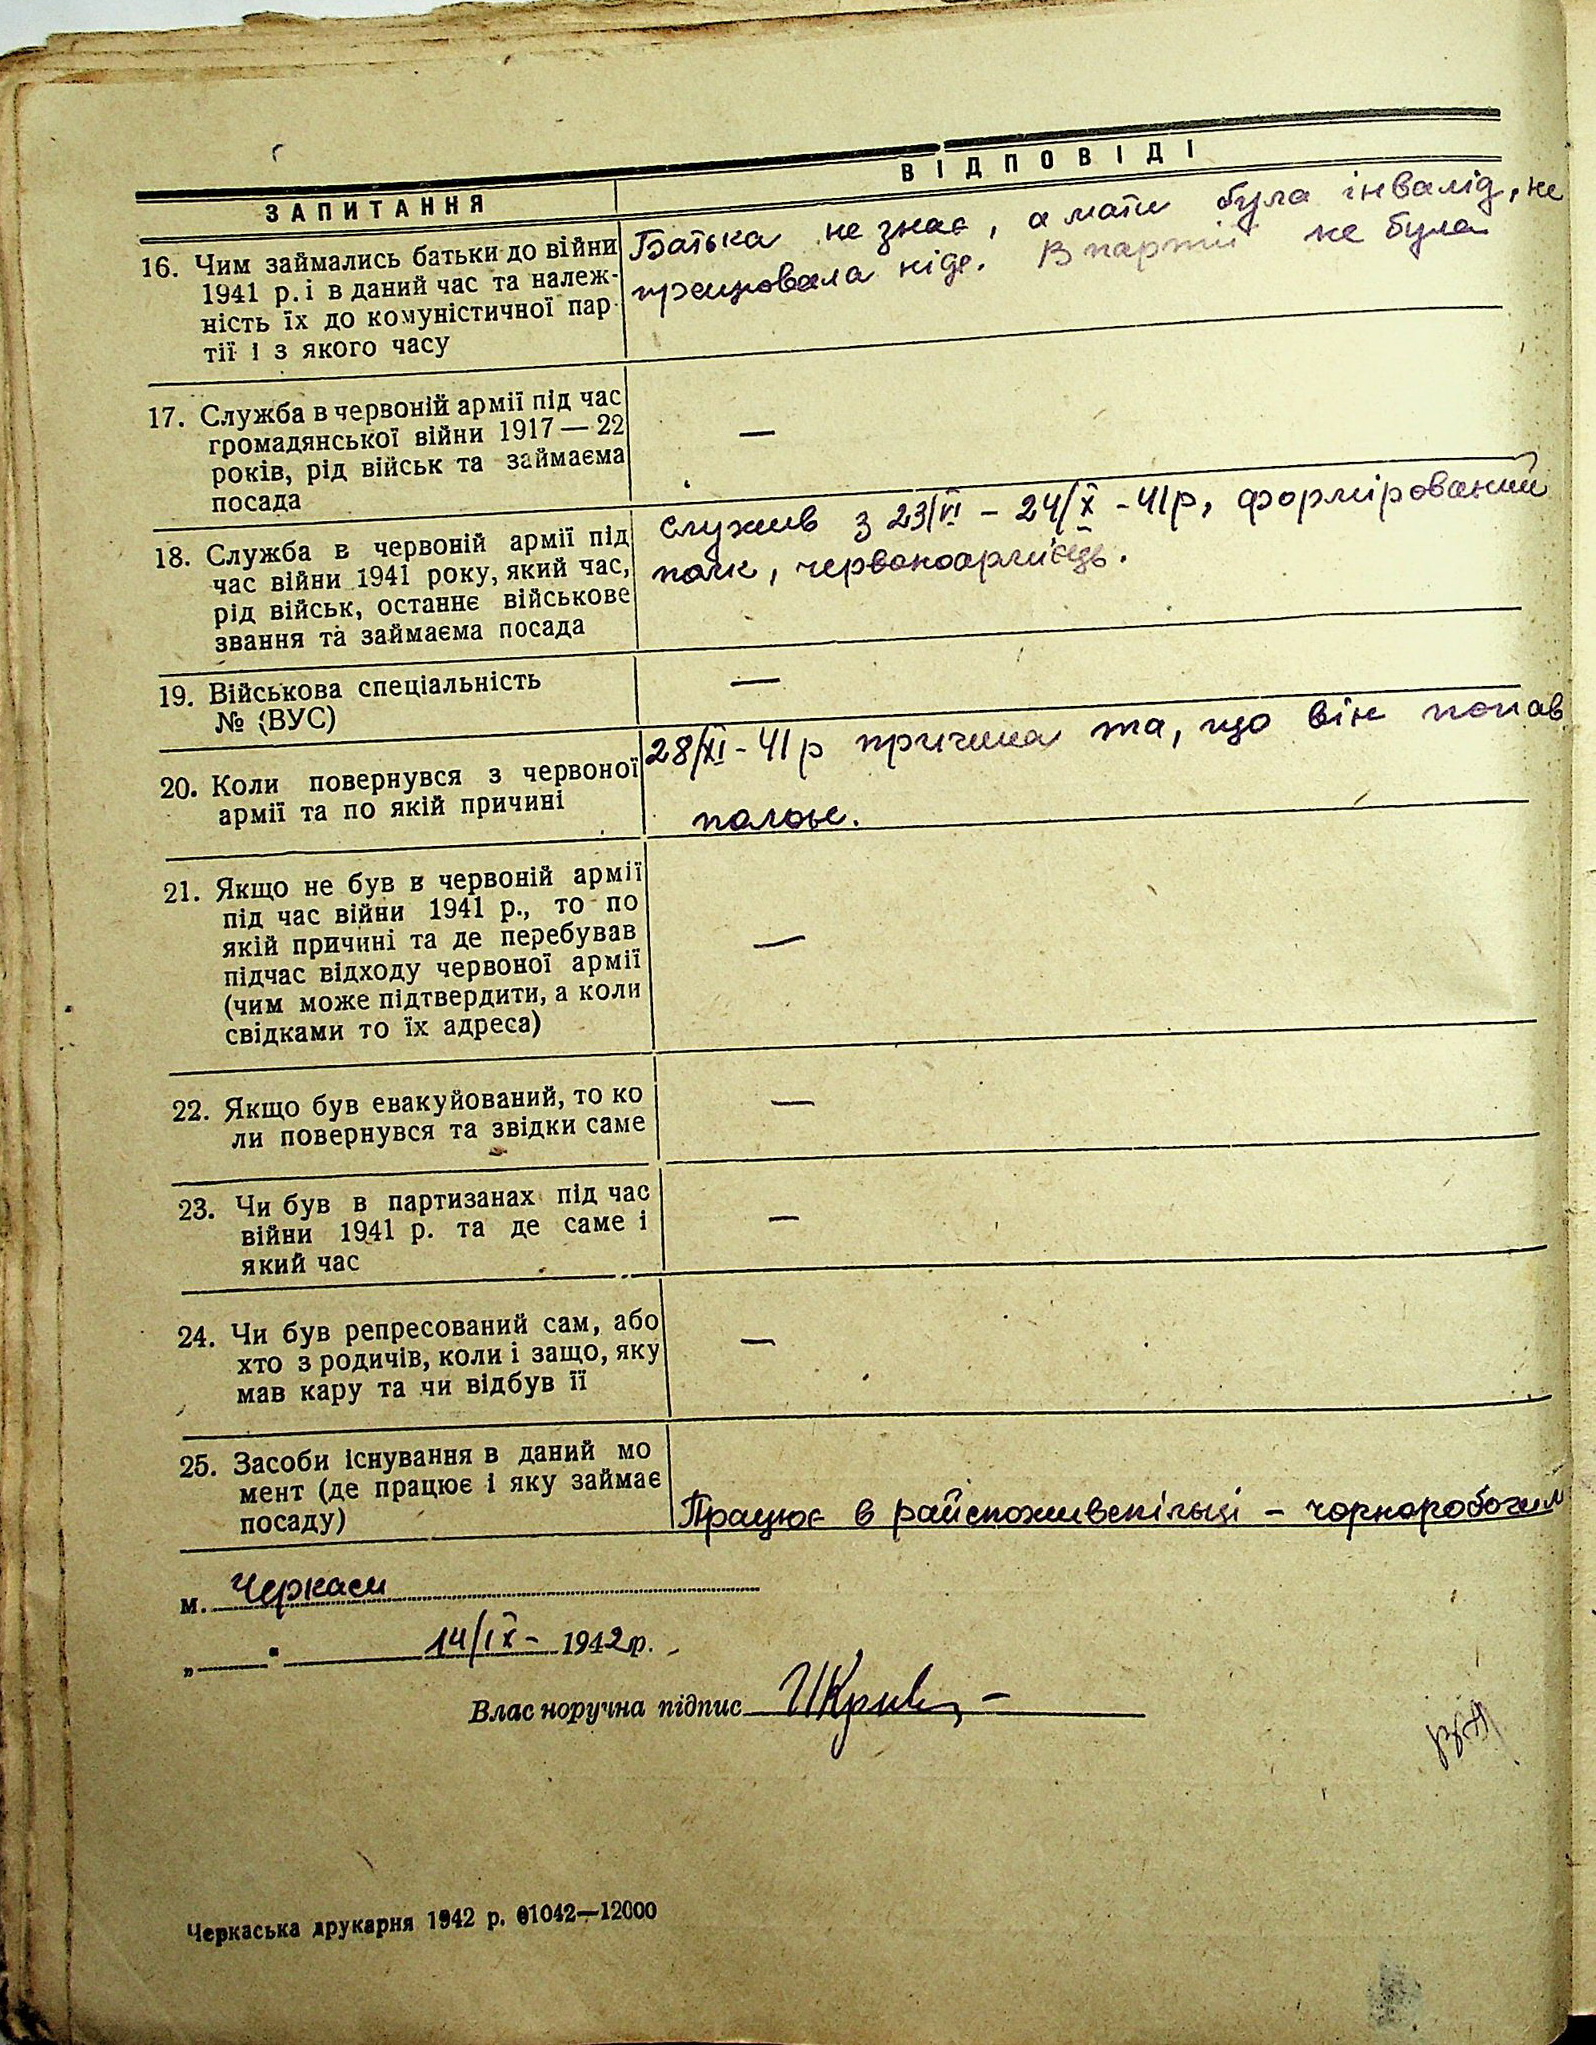 ЗАПИТАННЯ
ВІДПОВІДІ
16. Чим займались батьки до війни
1941 р. і в даний час та належ-
ність їх до комуністичної пар-
тії і з якого часу
Батька не знає, а мати була інвалід, не
працювала ніде. В партії не була
17. Служба в червоній армії під час
громадянської війни 1917—22
років, рід військ та займаєма
посада
—
18. Служба в червоній армії під
час війни 1941 року, який час,
рід військ, останнє військове
звання та займаєма посада
служив з 23/VI – 24/X - 41р, формірований
полк, червоноармієць.
19. Військова спеціальність
№ (ВУС)
—
20. Коли повернувся з червоної
армії та по якій причині
28/XI - 41р причина та, що він попав
полон.
21. Якщо не був в червоній армії
під час війни 1941 р., то по
якій причині та де перебував
підчас відходу червоної армії
(чим може підтвердити, а коли
свідками то їх адреса)
—
22. Якщо був евакуйований, то ко
ли повернувся та звідки саме
—
23. Чи був в партизанах під час
війни 1941 р. та де саме і
який час
—
24. Чи був репресований сам, або
хто з родичів, коли і защо, яку
мав кару та чи відбув її
—
25. Засоби існування в даний мо
мент (де працює і яку займає
посаду)
Працює в райспоживспілці – чорноробочим
м. Черкаси
„ “ 14/IX - 1942р.
Влас норучна підпис
Черкаська друкарня 1942 р. 01042—12000